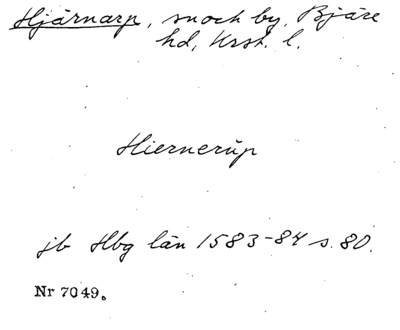 Hjärnarp, sn och by, Bjäre
hd, Krst. l.
Hiernerup
jb Hbg län 1583-84 s. 80.
Nr 7049.